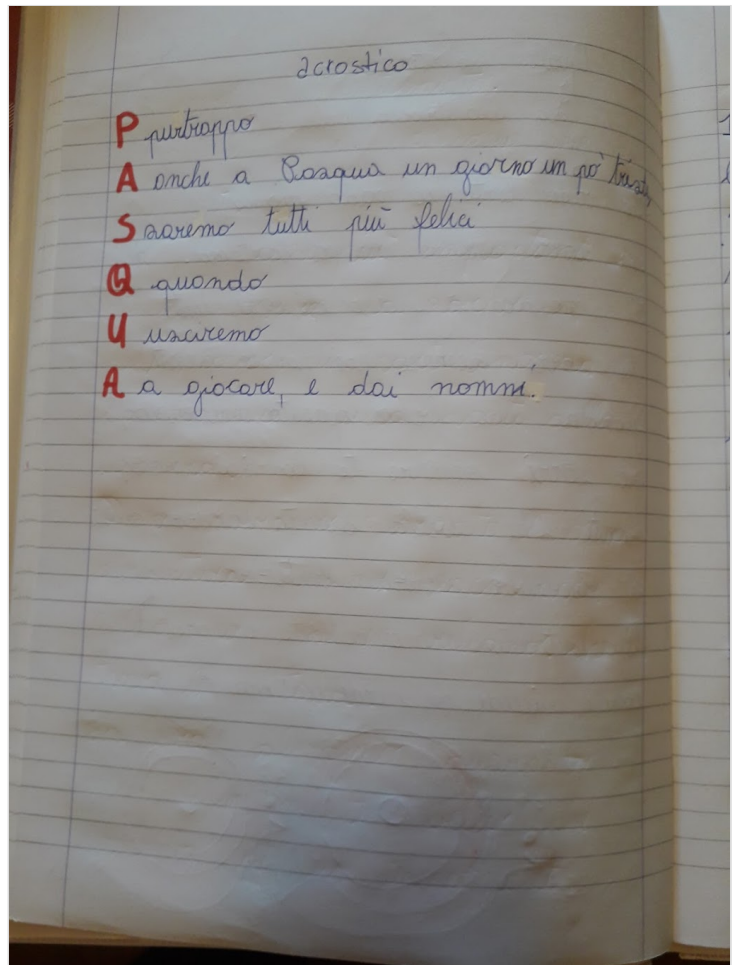 acrostico
P purtrappo
A anche a Pasqua un giorno un pò triste,
S saremo tutti più felici
Q quando
U usciremo
A a giocare, e dai nonni.